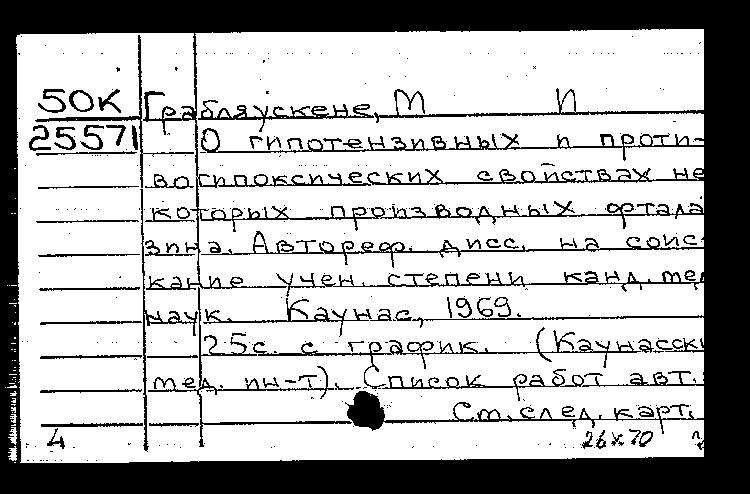 50К Грабляускене, М И
25571 О гипотензивных и проти-
вогипоксических свойствах не
которых производных фтала
зина. Автореф. дисс. на соис-
кание учен. степени канд. мед
наук. Каунас, 1969.
25с. с график. (Каунасски
мед. ин-т). Список работ авт.:
См. след. карт.
4 26х70